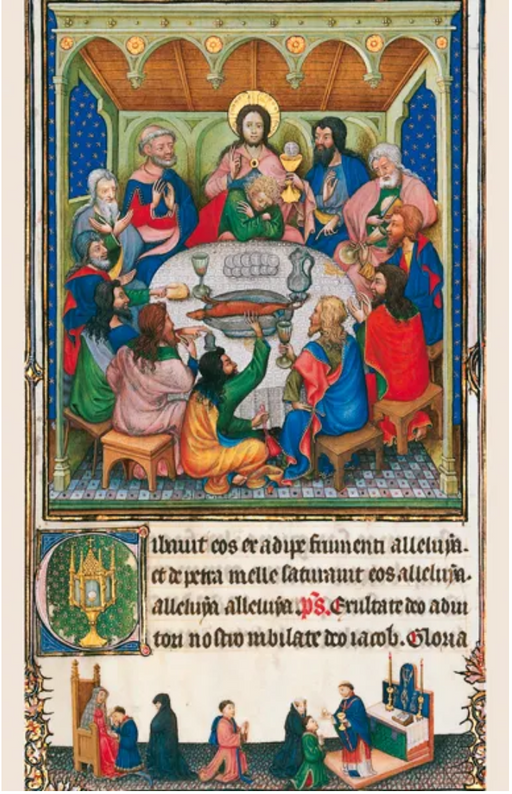 Cibauit eos ex adipe frumenti alleluya.
et de petra melle saturauit eos alleluya.
alleluya alleluya. ps. Exultate deo adiu
tori nostro iubilate deo iacob. Gloria